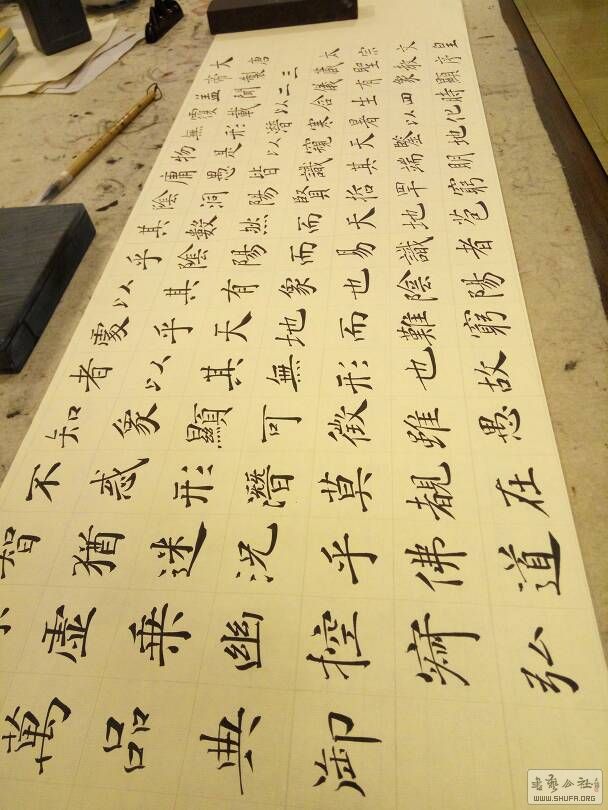 大唐三藏聖教序
太宗文皇帝製
蓋聞二儀有象顯
覆載以含生四時
無形潛寒暑以化
物是以窺天鑒地
庸愚皆識其端明
陰洞陽賢哲罕窮
其數然而天地苞
乎陰陽而易識者
以其有象也陰陽
處乎天地而難窮
者以其無形也故
知象顯可徵雖愚
不惑形潛莫覩在
智猶迷況乎佛道
虛乘幽控寂弘
萬品典御
WWW.SHUFA.ORG